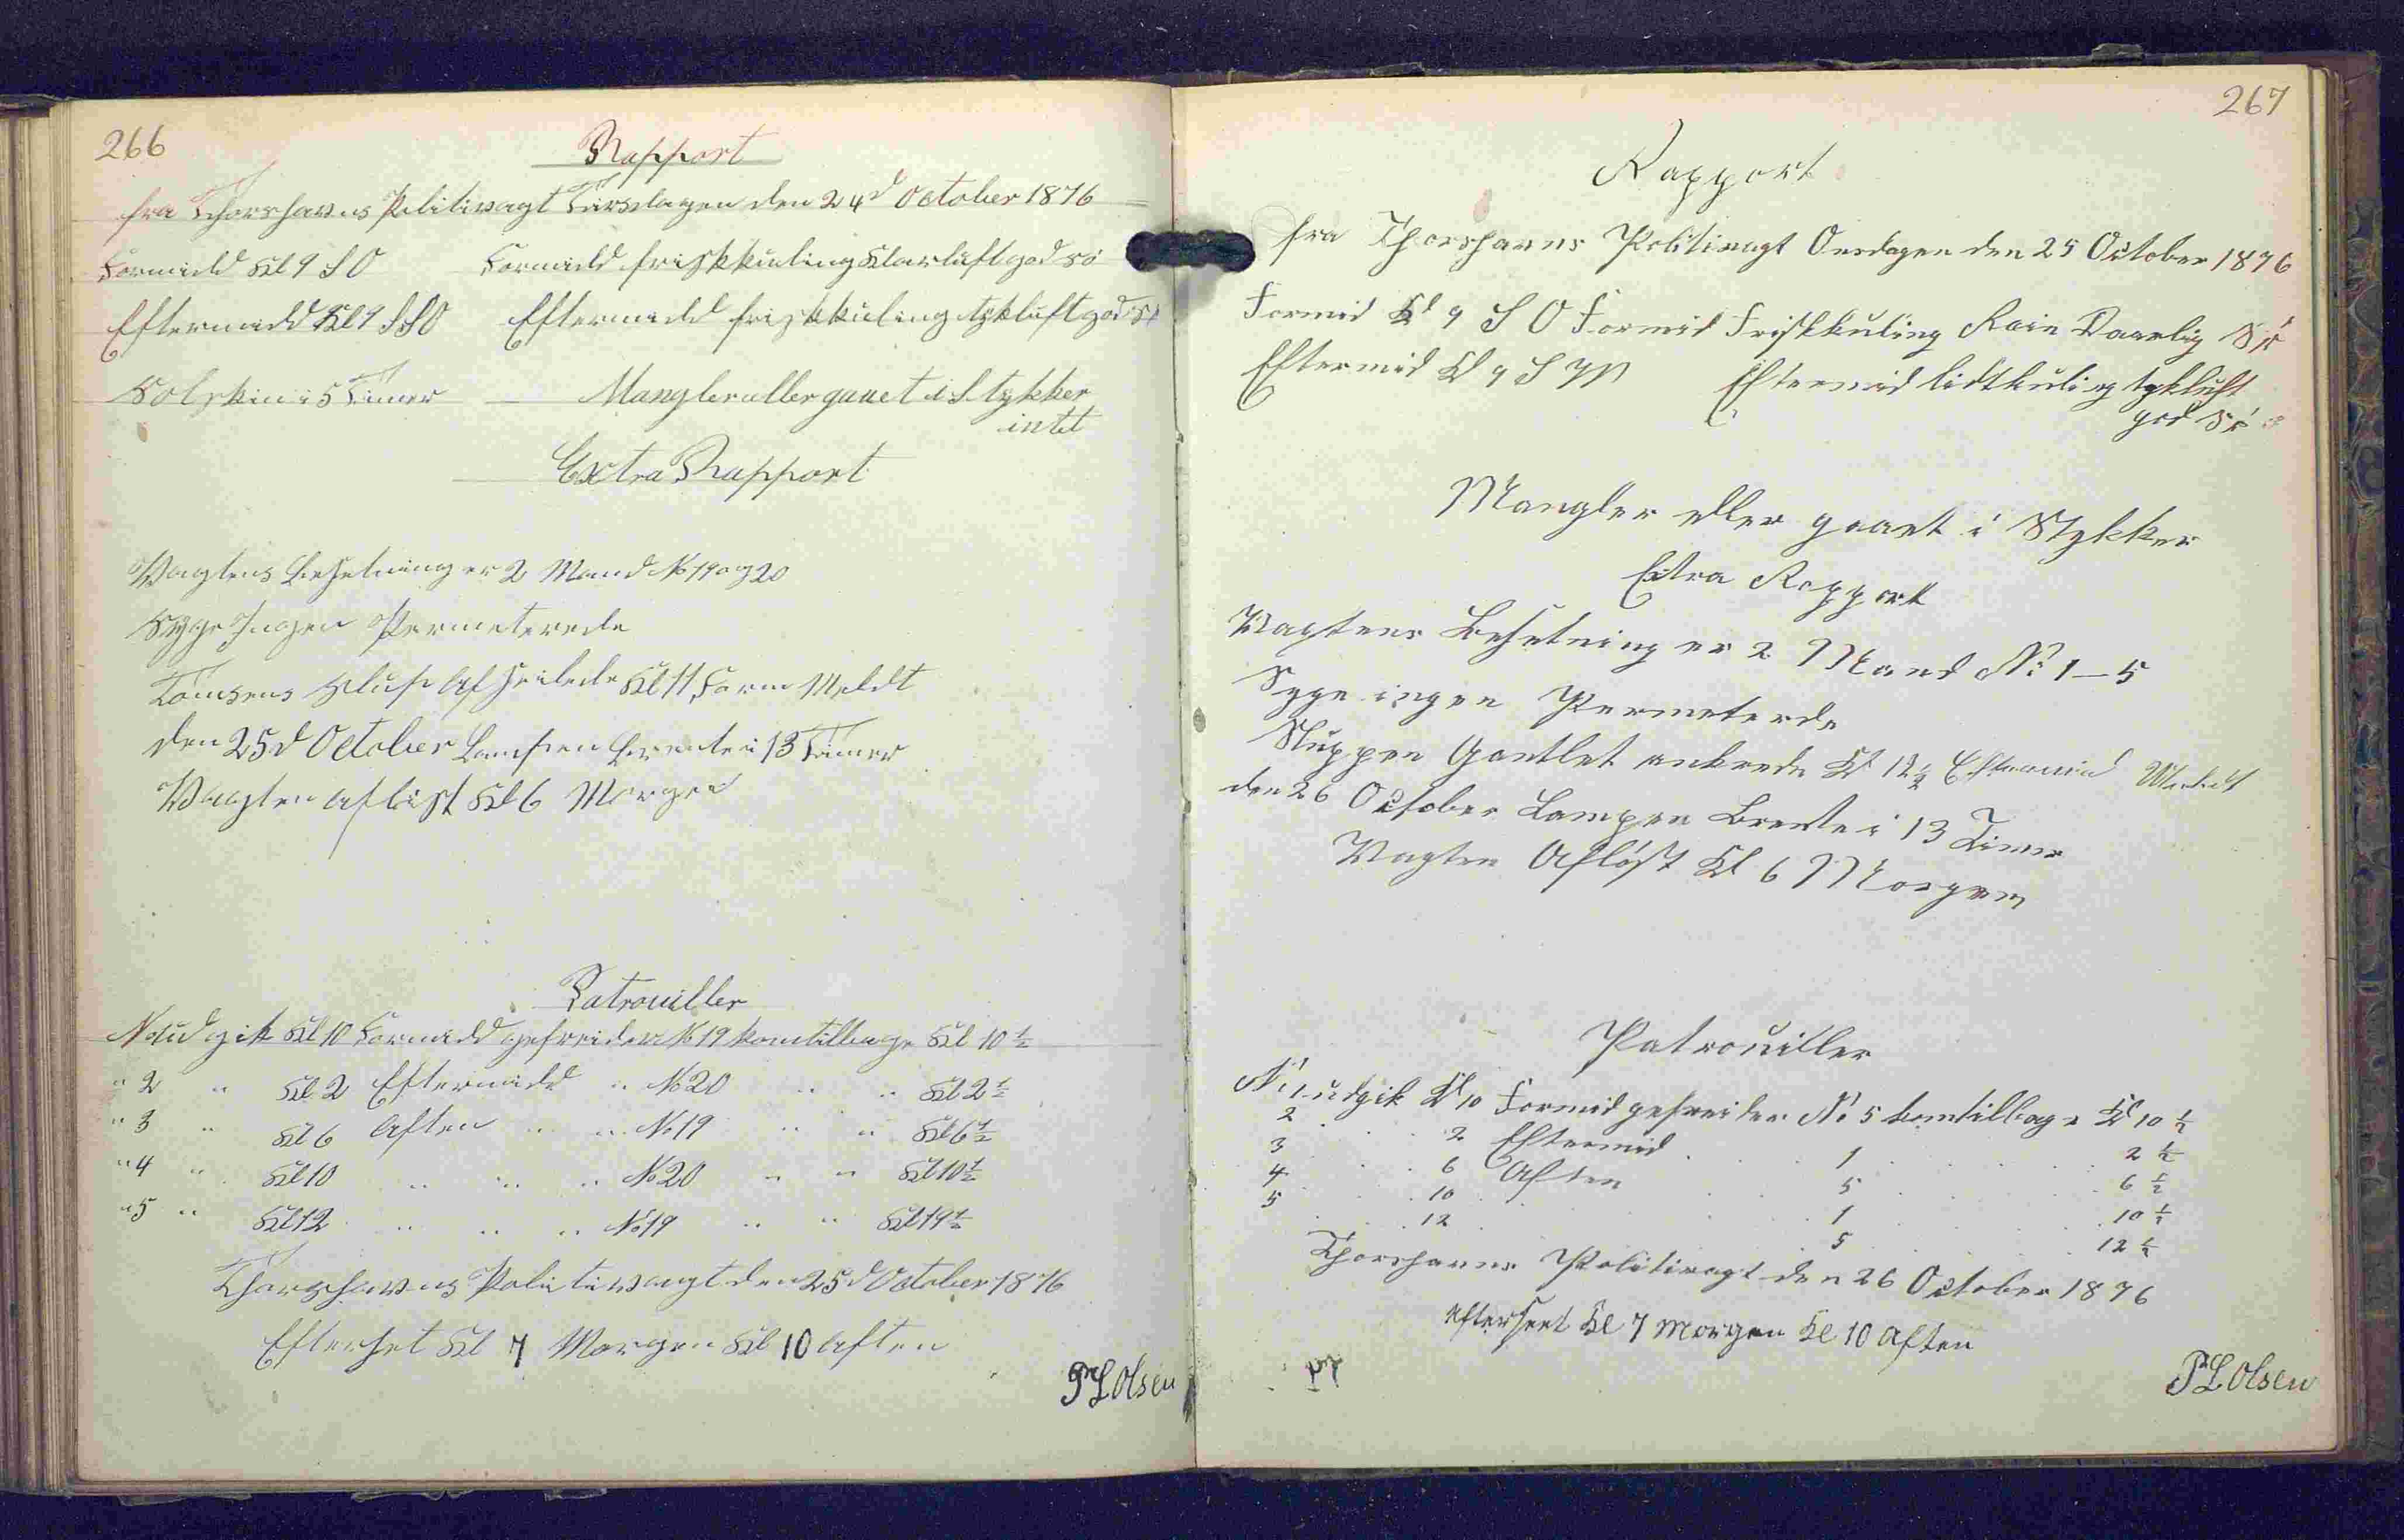 266
Rapport
fra Thorshavns Politivagt Tirsdagen den 24d October 1876
Formidd Kl 9 SO Formidd friskkuling Klarluft god sö
Eftermidd Kl 9 SSO Eftermidd friskkuling tykluft god sö
Solskin i 5 Timer Mangler eller gaaet i Stykker
intet
Extra Rapport
Vagtens Besetning er 2 Mand No 19 og 20
Syge Ingen Permeterede
Slup Afseilede Kl 11 Form Meldt
den 25d October Lampen brente i 13 Timer
Vagten aflöst Kl 6 Morgen
Patrouiller
No 1 ud gik Kl 10 Formidd gefreider No 19 kom tilbage Kl 10 ½
" 2 " Kl 2 Eftermidd " No 20 " " Kl 2 ½
" 3 " Kl 6 Aften " " No 19 " " Kl 6 ½
" 4 " Kl 10 " " " No 20 " " Kl 10 ½
" 5 " Kl 12 " " " No 19 " " Kl 19 ½
Thorshavns Politivagt den 25d October 1876
Efterset Kl 7 Morgen Kl 10 Aften
PL Olsen
267
Rapport
fra Thorshavns Politivagt Onsdagen den 25 October 1876
Formid Kl 9 SO Formid Friskkuling Rain Daarlig Sö
Eftermid Kl 9 SW Eftermid lidtkuling tykluft
god Sö
Mangler eller gaaet i Stykker
Extra Rapport
Vagtens Besetning er 2 Mand No 1 – 5
Syge ingen Permeterde
Sluppen Gantlet ankrede Kl 12 ½ Eftermid Meldt
den 26 October Lampen Brente i 13 Timer
Vagten Aflöst Kl 6 Morgen
Patrouiller
No 1 udgik Kl 10 Formid gefreider No 5 kom tilbage Kl 10 ½
2 . . 2 Eftermid . . 1 . . 2 ½
3 . . 6 Aften . . 5 . . 6 ½
4 . . 10 . . 1 . . 10 ½
5 . . 12 . . 5 . . 12 ½
Thorshavns Politivagt den 26 October 1876
Efterseet Kl 7 Morgen Kl 10 Aften
PL Olsen